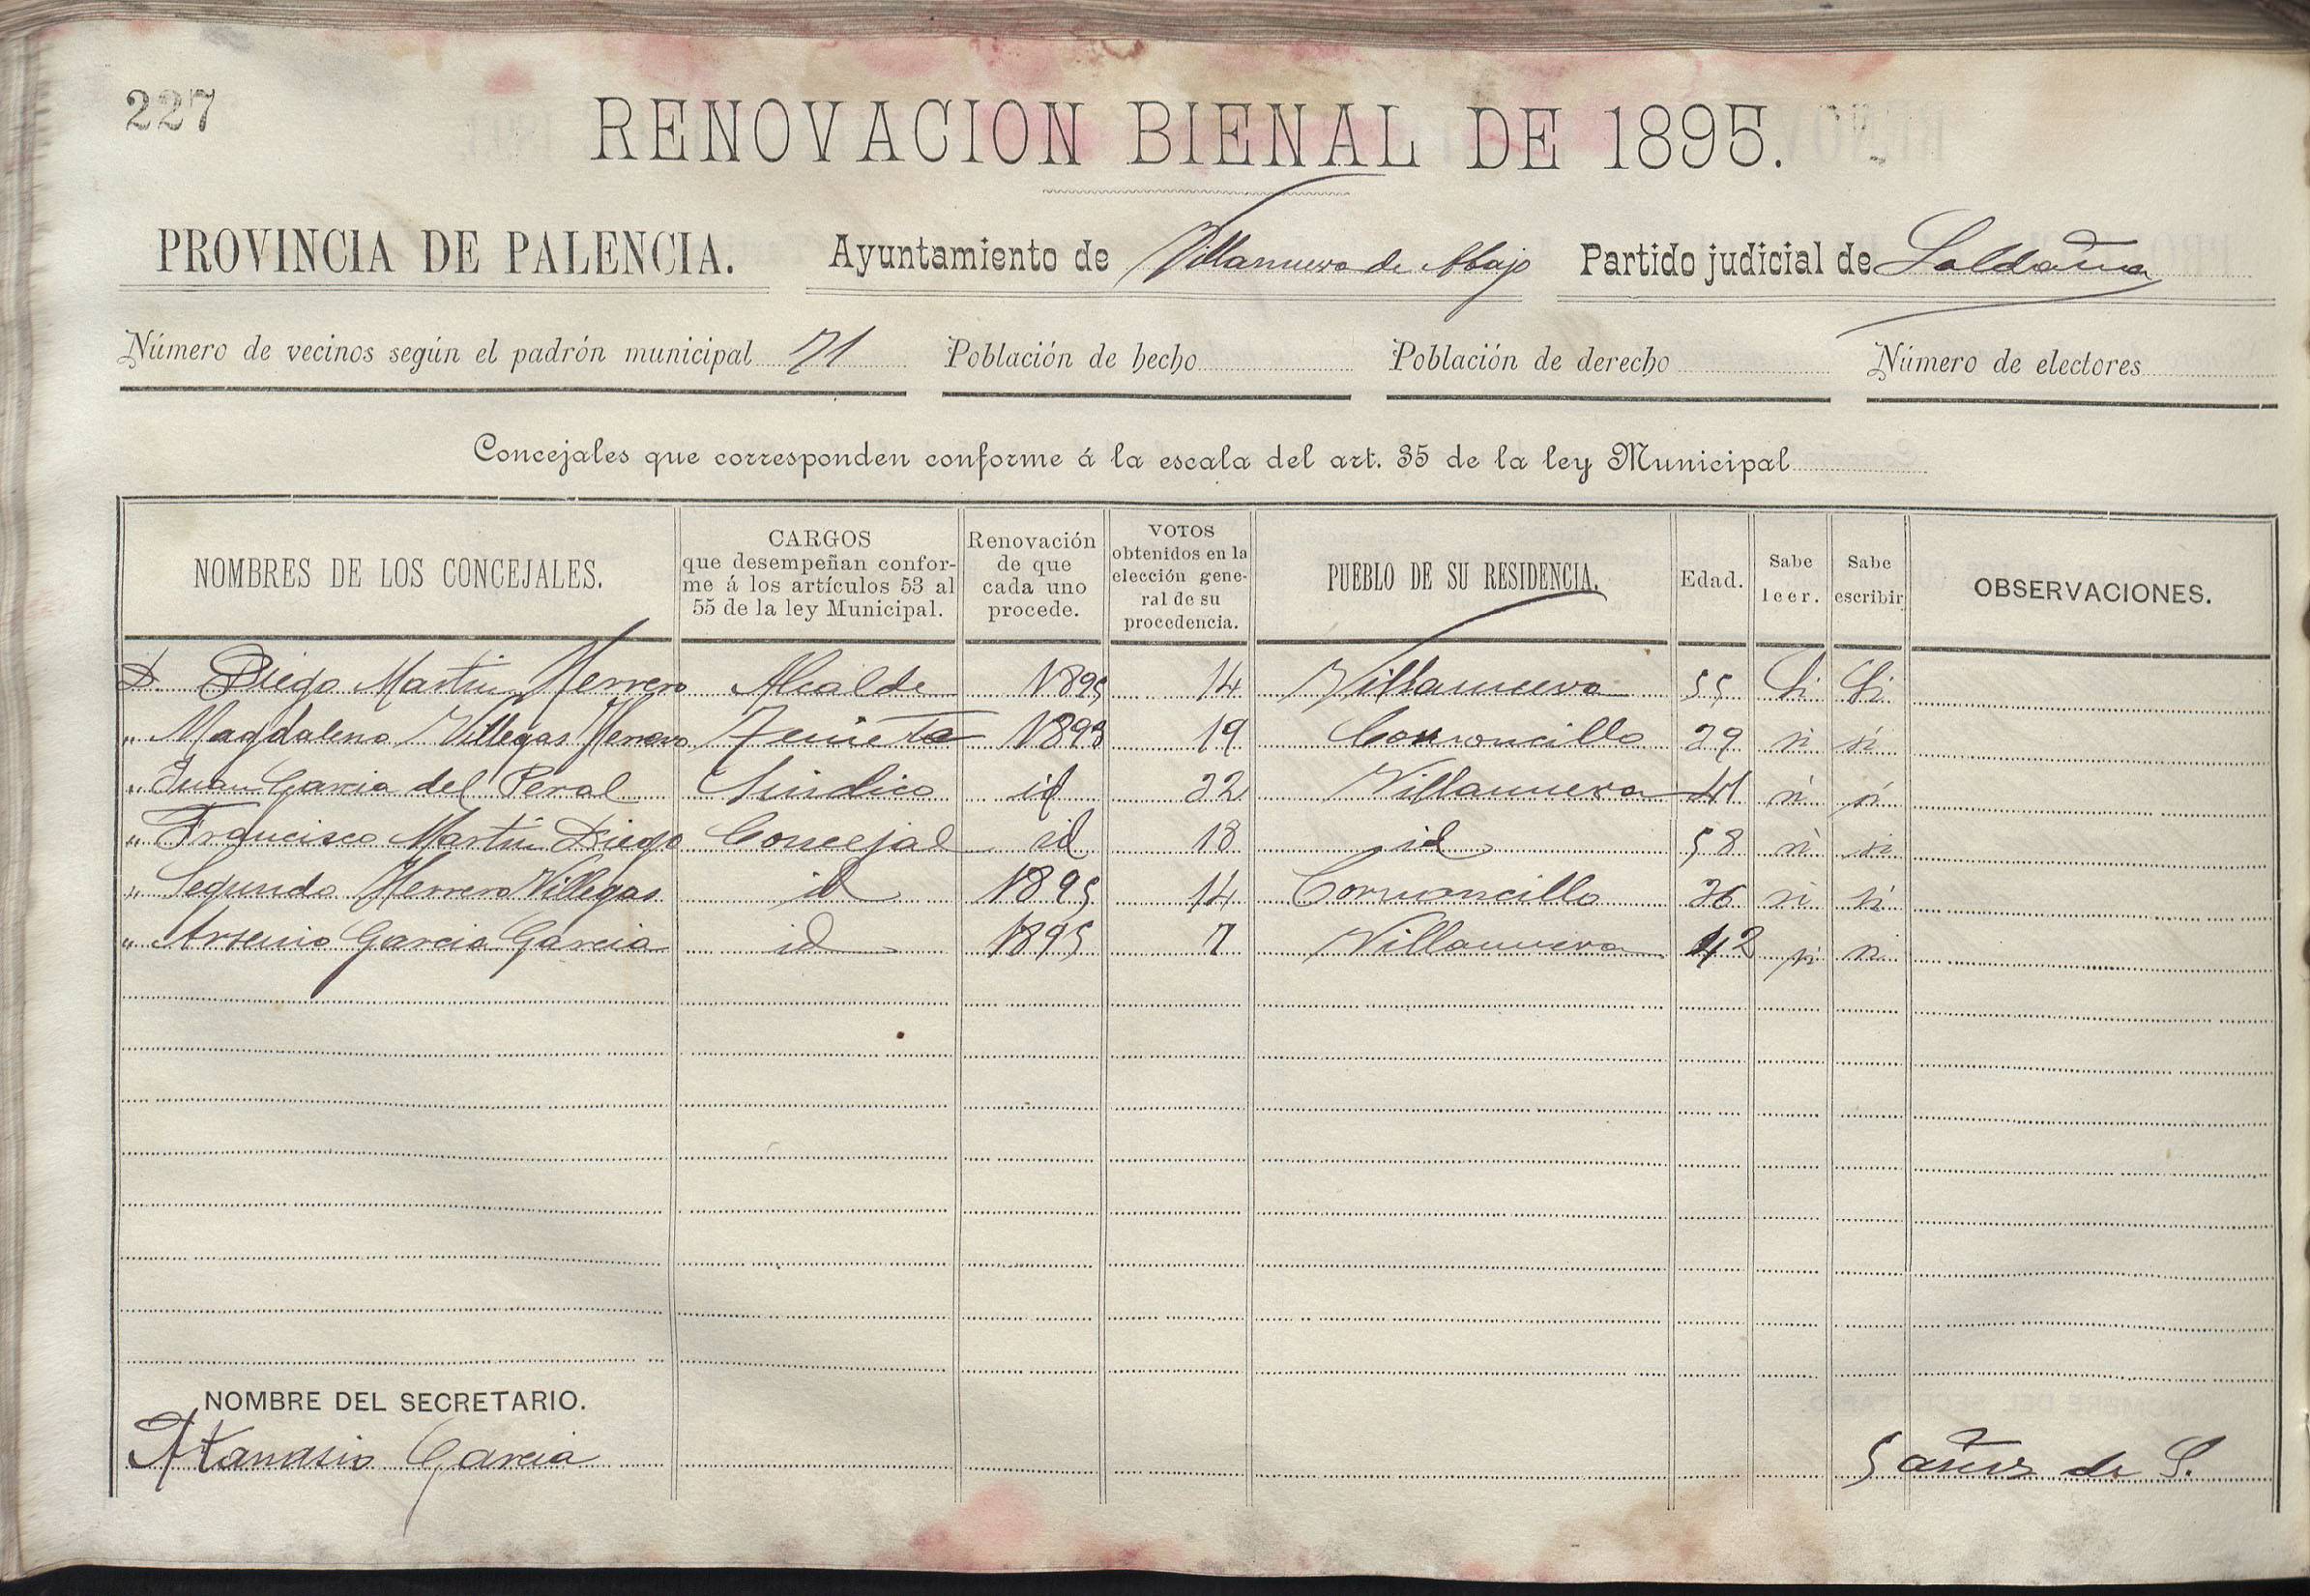 227
RENOVACION BIENAL DE 1895.
PROVINCIA DE PALENCIA. Ayuntamiento de Villanueva de Abajo Partido judicial de Saldaña
Número de vecinos según el padrón municipal 71 Población de hecho Población de derecho Número de electores
Concejales que corresponden conforme á la escala del art. 35 de la ley Municipal
NOMBRES DE LOS CONCEJALES.
CARGOS
que desempeñan confor-
me á los artículos 53 al
55 de la ley Municipal.
Renovación
de que
cada uno
procede.
VOTOS
obtenidos en la
elección gene-
ral de su
procedencia.
PUEBLO DE SU RESIDENCIA.
Edad.
Sabe
leer.
Sabe
escribir
OBSERVACIONES.
D. Diego Martin Herrero Alcalde 1895 14 Villanueva 55 Si Si
" Magdaleno Villegas Herrero Teniente 1893 19 Cornoncillo 29 si si
" Juan Garcia del Peral Sindico id 22 Villanueva 41 si si
" Francisco Martin Diego Concejal id 18 id 58 si si
" Segundo Herrero Villegas id 1895 14 Cornoncillo 26 si si
" Arsenio Garcia Garcia id 1895 7 Villanueva 42 si si
NOMBRE DEL SECRETARIO.
Atanasio Garcia 5 años de S.